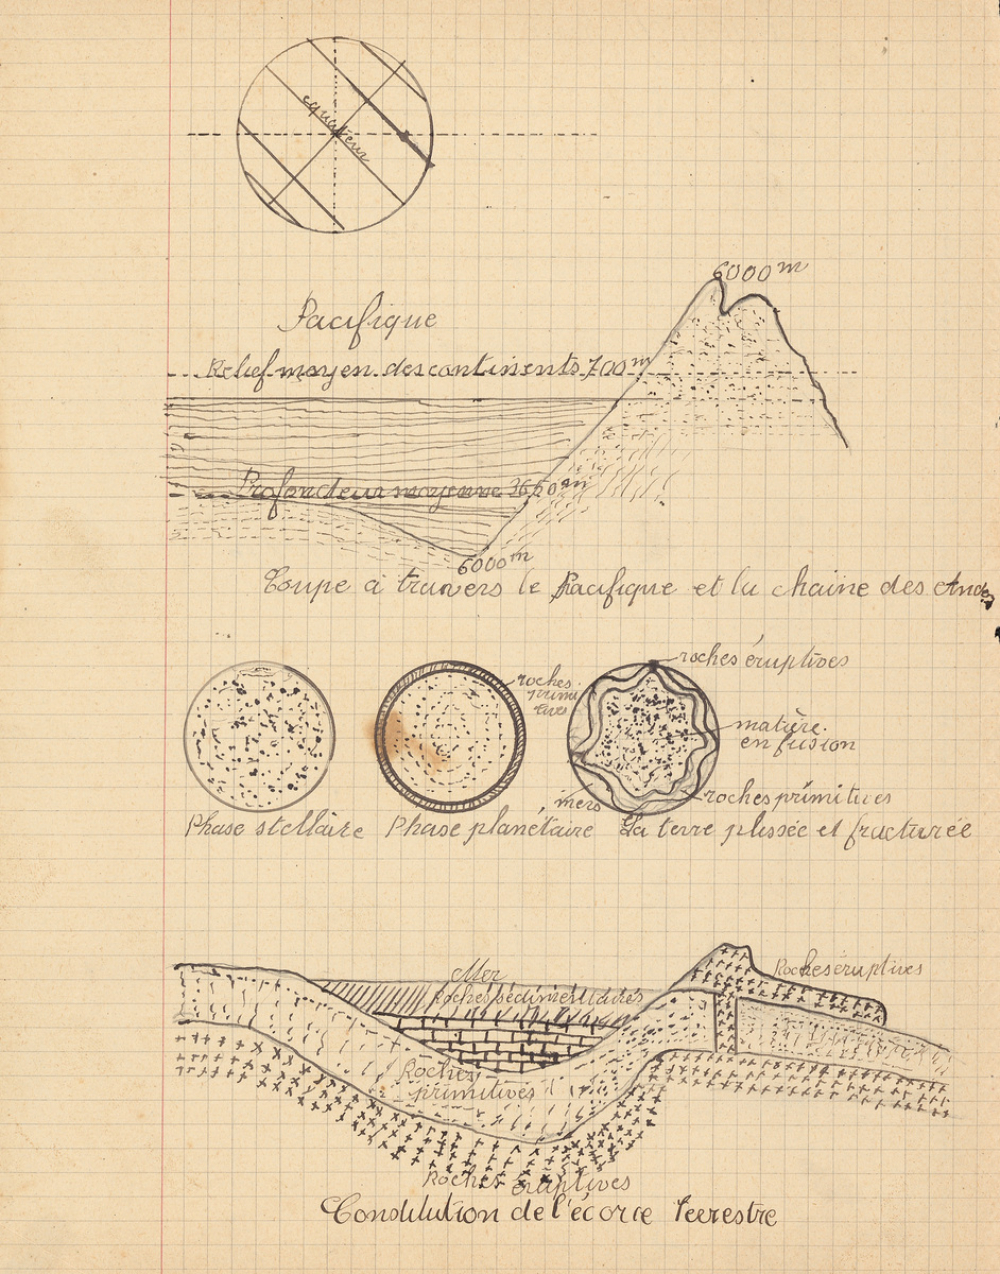 equateur
6000 m
Pacifique
Relief moyen des continents 700 m
Profondeur moyenne 3650 m
6000 m
Coupe à travers le Pacifique et la chaine des Andes
roches éruptives
roches
primi
tives
matière
en fusion
mers
roches primitives
Phase stellaire
Phase planétaire
La terre plissée et fracturée
Mer
Roches éruptives
Roches sédimentaires
Roches
primitives
Roches éruptives
Constitution de l'écorce terrestre